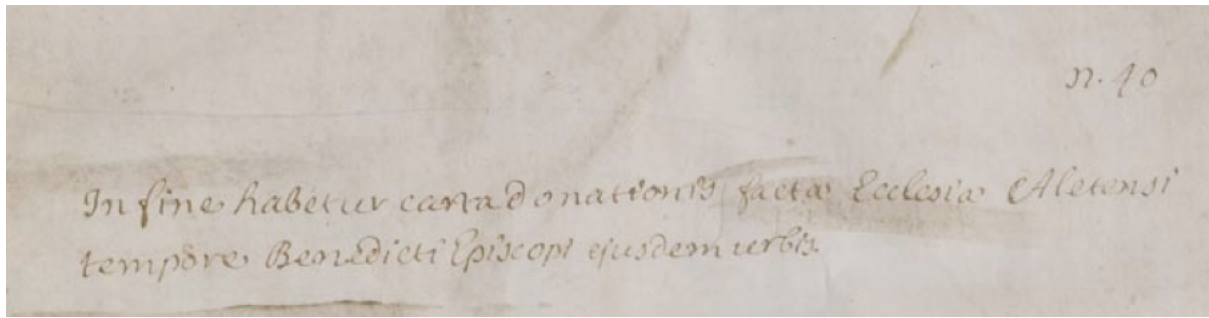 n. 40
In fine habetur carta donationis factæ Ecclesiæ Aletensi
tempore Benedicti Episcopi ejusdem urbis.